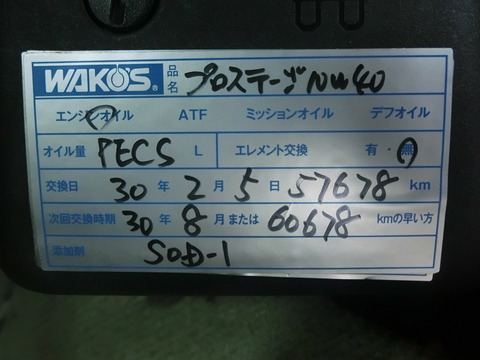 WAKO'S® 品名 プロステージNW40
エンジンオイル ATF ミッションオイル デフオイル
オイル量 PECS L エレメント交換 有・無
交換日 30年2月5日 57678 km
次回交換時期 30年8月または 60678 kmの早い方
添加剤 SOD-1